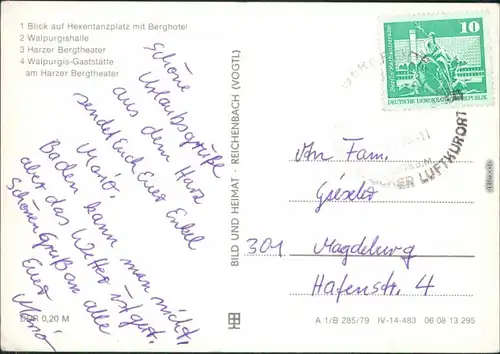 1 Blick auf Hexentanzplatz mit Berghotel
2 Walpurgishalle
3 Harzer Bergtheater
4 Walpurgis-Gaststätte
am Harzer Bergtheater
Schöne
Urlaubsgrüße
aus dem Harz
sendet Euch Euer Enkel
Mario.
Baden kann man nicht,
aber das Wetter ist gut.
Schönen Gruß an alle
Euer
Mario
DDR 0,20 M
BILD UND HEIMAT · REICHENBACH (VOGTL)
10
DEUTSCHE DEMOKRATISCHE REPUBLIK
LUFTKURORT
An Fam.
Giesler
301 Magdeburg
Hafenstr. 4
A 1/B 285/79 IV-14-483 06 08 13 295